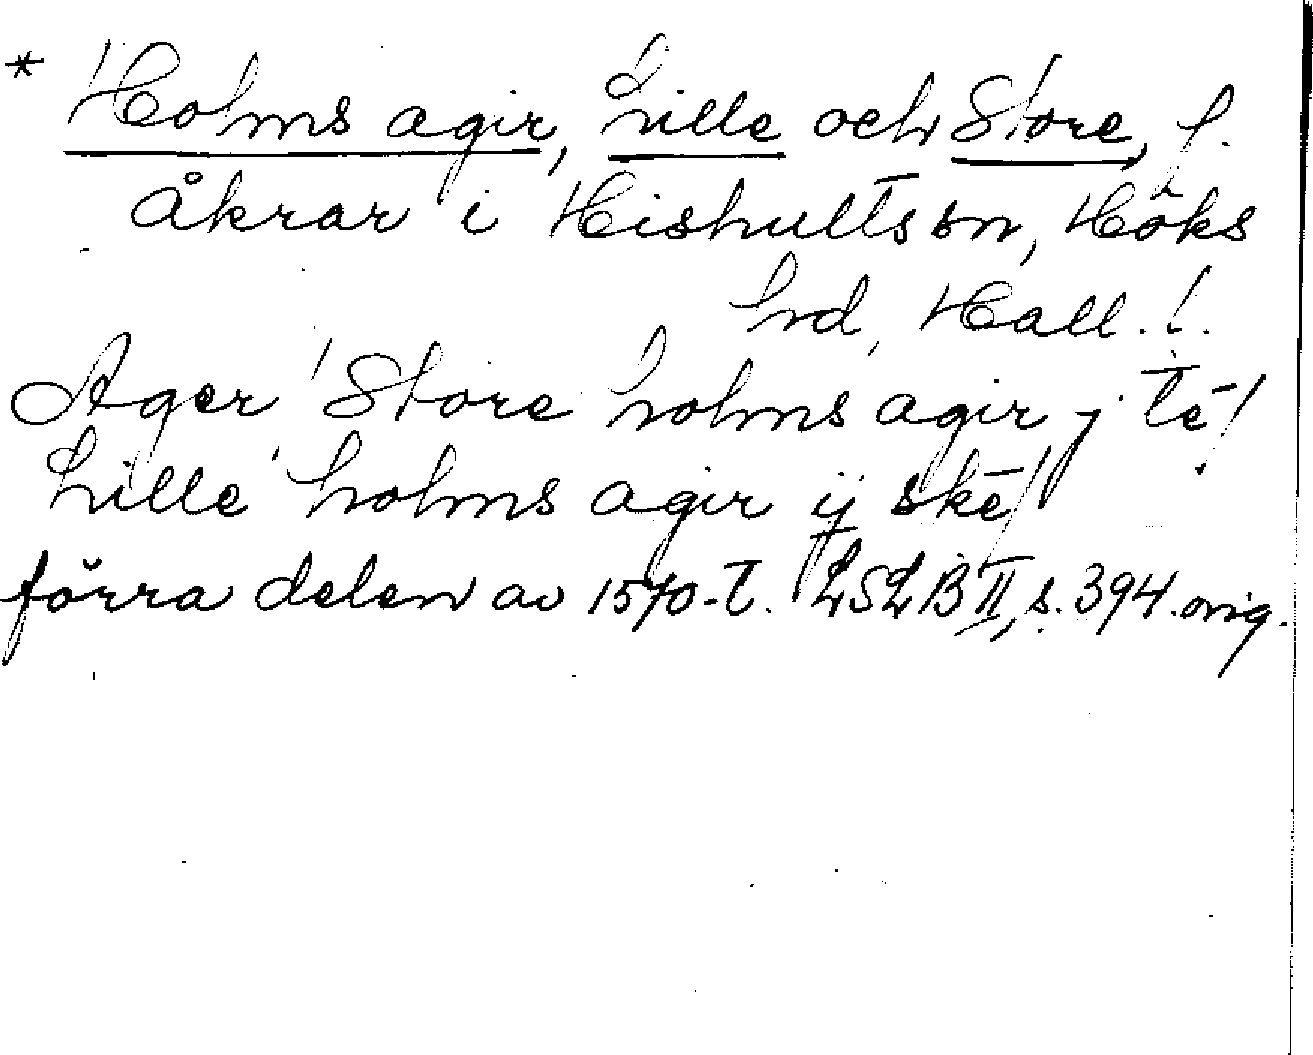 * Holms agir, Lille och Store, f.
åkrar i Hishults sn, Höks
hd, Hall. l.
Ager Store holms agir j tē
Lille holms agir ij skē
förra delen av 1570-t. LSLB II, s. 394. orig.